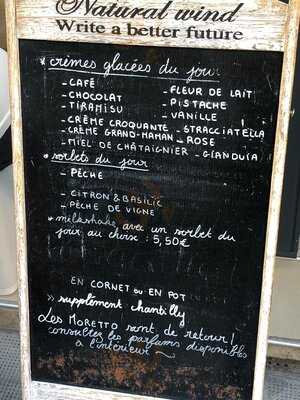 Natural wind
Write a better future
* crèmes glacées du jour
- CAFÉ
- CHOCOLAT
- TIRAMISU
- CRÈME CROQUANTE
- CRÈME GRAND-MAMAN
- MIEL DE CHÂTAIGNIER
- FLEUR DE LAIT
- PISTACHE
- VANILLE
- STRACCIATELLA
- ROSE
- GIANDUIA
* sorbets du jour
- PÊCHE
- CITRON & BASILIC
- PÊCHE DE VIGNE
* milkshake avec un sorbet du
jour au choise : 5,50€
EN CORNET OU EN POT
» supplément chantilly
Les MORETTO sont de retour!
consultez les parfums disponibles
à l'intérieur